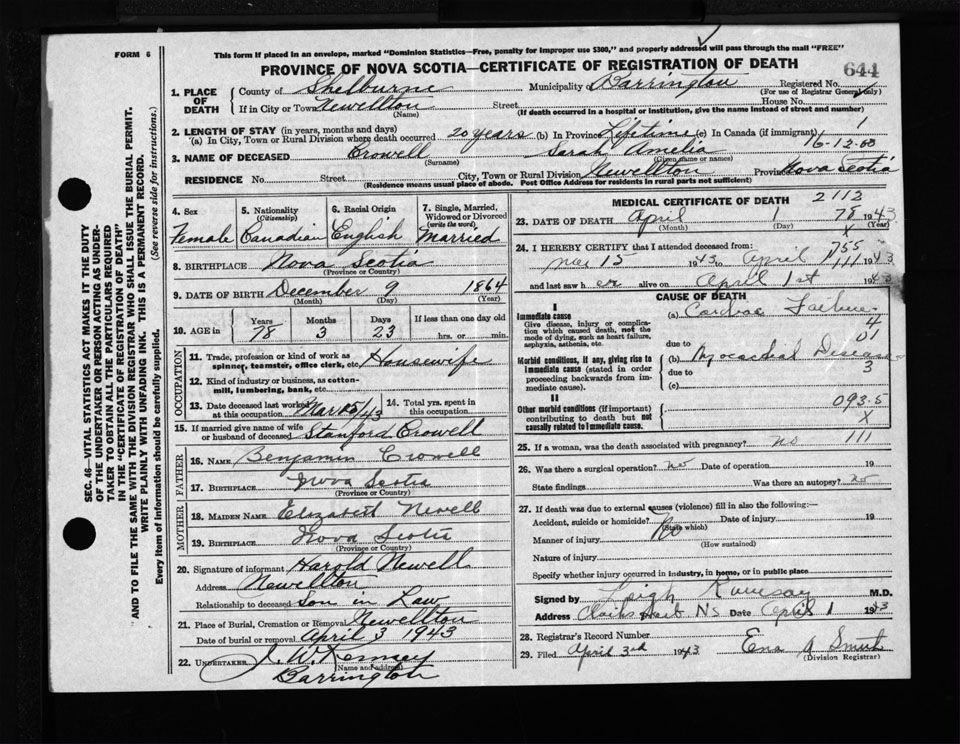 FORM 6
This form if placed in an envelope, marked "Dominion Statistics—Free, penalty for improper use $300," and properly addressed will pass through the mail "FREE"
PROVINCE OF NOVA SCOTIA—CERTIFICATE OF REGISTRATION OF DEATH
644
1. PLACE OF DEATH
County of Shelburne Municipality of Barrington Registered No.
(For use of Registrar General only)
If in City or Town Newellton Street House No.
(Name) (If death occurred in a hospital or institution, give the name instead of street and number)
2. LENGTH OF STAY (in years, months and days)
(a) In City, Town or Rural Division where death occurred 20 years (b) In Province Lifetime (c) In Canada (if immigrant)
16-12-60
3. NAME OF DECEASED Crowell Sarah Amelia
(Surname) (Given name or names)
RESIDENCE No. Street City, Town or Rural Division Newellton Province Nova Scotia
(Residence means usual place of abode. Post Office Address for residents in rural parts not sufficient)
4. Sex Female
5. Nationality (Citizenship) Canadian
6. Racial Origin English
7. Single, Married, Widowed or Divorced (write the word) Married
8. BIRTHPLACE Nova Scotia
(Province or Country)
9. DATE OF BIRTH December 9 1864
(Month) (Day) (Year)
10. AGE in Years Months Days If less than one day old
78 3 23 hrs. or min.
OCCUPATION
11. Trade, profession or kind of work as spinner, teamster, office clerk, etc. Housewife
12. Kind of industry or business, as cotton-mill, lumbering, bank, etc.
13. Date deceased last worked at this occupation Mar 15/43
14. Total yrs. spent in this occupation
15. If married give name of wife or husband of deceased Stanford Crowell
FATHER
16. Name Benjamin Crowell
17. Birthplace Nova Scotia
(Province or Country)
MOTHER
18. Maiden Name Elizabeth Newell
19. Birthplace Nova Scotia
(Province or Country)
20. Signature of informant Harold Newell
Address Newellton
Relationship to deceased Son in Law
21. Place of Burial, Cremation or Removal Newellton
Date of burial or removal April 3 1943
22. Undertaker J. W. Kenney
(Name and address)
Barrington
MEDICAL CERTIFICATE OF DEATH
2112
23. DATE OF DEATH April 1 1943
78
(Month) (Day) (Year)
X
24. I HEREBY CERTIFY that I attended deceased from:
755
Mar 15 1943 to April 1 1943
and last saw her alive on April 1st 1943
CAUSE OF DEATH
Immediate cause
Give disease, injury or complication which caused death, not the mode of dying, such as heart failure, asphyxia, asthenia, etc.
(a) Cardiac Failure
4
01
due to
Morbid conditions, if any, giving rise to immediate cause (stated in order proceeding backwards from immediate cause).
(b) Myocardial Disease
due to
3
(c)
II
Other morbid conditions (if important) contributing to death but not causally related to immediate cause.
093.5
X
111
25. If a woman, was the death associated with pregnancy? no
26. Was there a surgical operation? no Date of operation 19
State findings Was there an autopsy? no
27. If death was due to external causes (violence) fill in also the following:—
Accident, suicide or homicide? No Date of injury 19
(State which)
Manner of injury
(How sustained)
Nature of injury
Specify whether injury occurred in industry, in home, or in public place
Signed by Leigh Ramsay M.D.
Address Clarks Harb NS Date April 1 1943
28. Registrar's Record Number
29. Filed April 3rd 1943 Ena A Smith
(Division Registrar)
SEC. 46—VITAL STATISTICS ACT MAKES IT THE DUTY
OF THE UNDERTAKER OR PERSON ACTING AS UNDER-
TAKER TO OBTAIN ALL THE PARTICULARS REQUIRED
IN THE "CERTIFICATE OF REGISTRATION OF DEATH"
AND TO FILE THE SAME WITH THE DIVISION REGISTRAR WHO SHALL ISSUE THE BURIAL PERMIT.
WRITE PLAINLY WITH UNFADING INK. THIS IS A PERMANENT RECORD.
Every item of information should be carefully supplied. (See reverse side for instructions.)